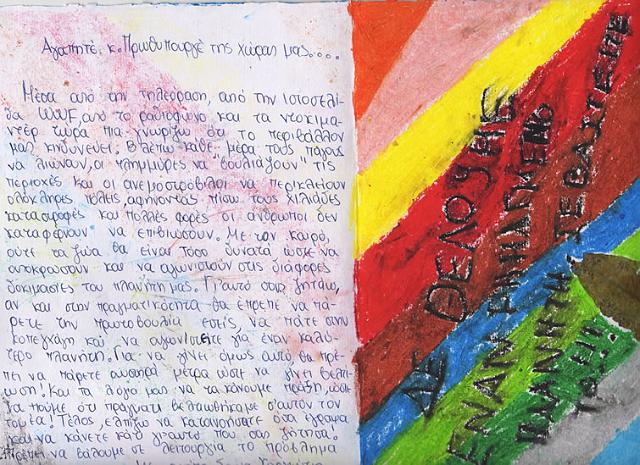 Αγαπητέ, κ. Πρωθυπουργέ της χώρας μας....
Μέσα από την τηλεόραση, από την Ιστοσελί-
δα WWF, από το ραδιόφωνο και τα ντοκιμα-
ντέρ τώρα πια γνωρίζω ότι το περιβάλλον
μας κινδυνεύει. Βλέπω κάθε μέρα τους πάγους
να λιώνουν, οι πλημμύρες να "βουλιάζουν" τις
περιοχές και οι ανεμοστρόβιλοι να περικλείουν
ολόκληρες πόλεις, αφήνοντας πίσω τους χιλιάδες
καταστροφές και πολλές φορές οι άνθρωποι δεν
καταφέρνουν να επιβιώσουν. Με τον καιρό,
ούτε τα ζώα θα είναι τόσο δυνατά ώστε να
αποκρούσουν και να αγωνιστούν στις διάφορες
δοκιμασίες του πλανήτη μας. Γι'αυτό σας ζητάω,
αν και στην πραγματικότητα θα έπρεπε να πά-
ρετε την πρωτοβουλία εσείς, να πάτε στην
Κοπεγχάγη και να αγωνιστείτε για έναν καλύ-
τερο πλανήτη. Για να γίνει όμως αυτό, θα πρέ-
πει να πάρετε σωστά μέτρα ώστε να γίνει βελτί-
ωση! Και τα λόγια μας να τα κάνουμε πράξη, ώστε
να πούμε ότι πράγματι βελτιωθήκαμε σ'αυτόν τον
τομέα! Τέλος, ελπίζω να κατανοήσατε όσα έγραψα
και να κάνετε κάτι γι'αυτό που σας ζήτησα!
Πρέπει να βάλουμε σε λειτουργία το πρόβλημα
ΔΕ ΘΕΛΟΥΜΕ
ΕΝΑΝ ΠΝΗΓΜΕΝΟ
ΠΛΑΝΗΤΗ.